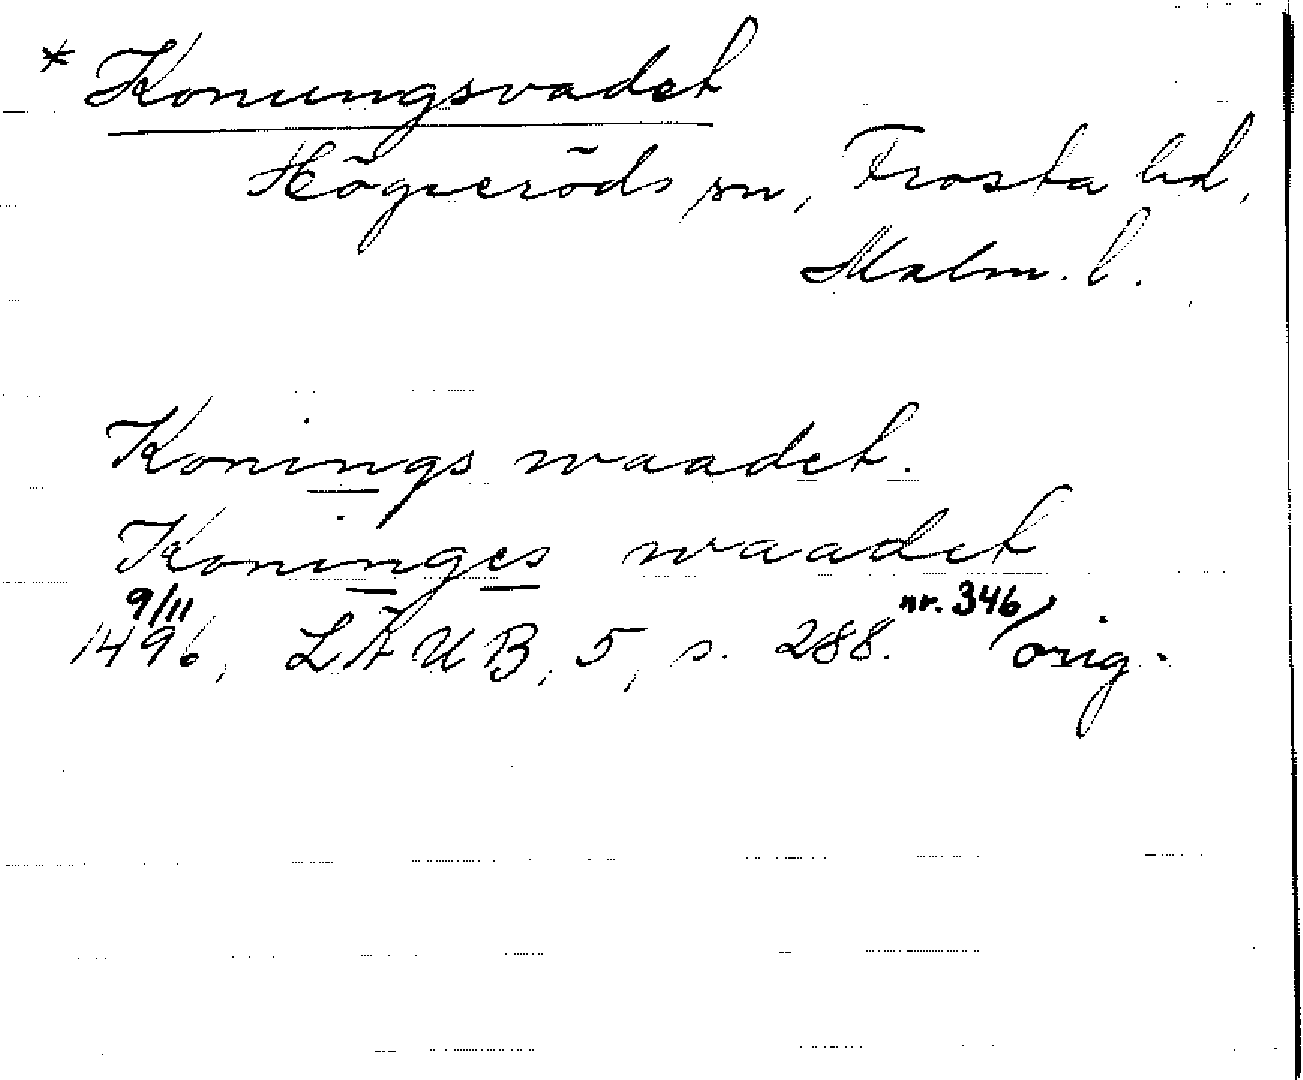 * Konungsvadet
Högseröds sn, Frosta hd,
Malm. l.
Konings waadet.
Koninges waadet
9/11 nr. 346
1496, LÄUB, 5, s. 288. orig.